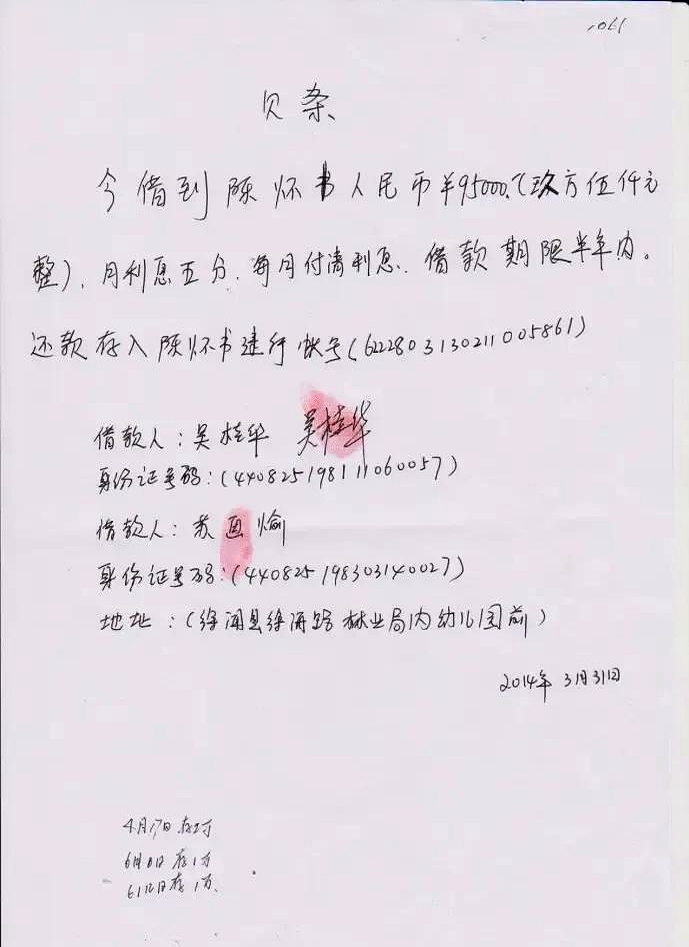 1061
贝条
今借到陈怀书人民币¥95000.-(玖万伍仟元
整)、月利息五分、每月付清利息、借款期限半年内。
还款存入陈怀书建行帐号(6222803130211005861)
借款人:吴桂华 吴桂华
身份证号码:(440825198111060057)
借款人:苏 燏
身份证号码:(440825198303140027)
地址:(徐闻县徐海路林业局内幼儿园前)
2014年3月31日
4月17日存2万
6月8日存1万
6月12日存1万